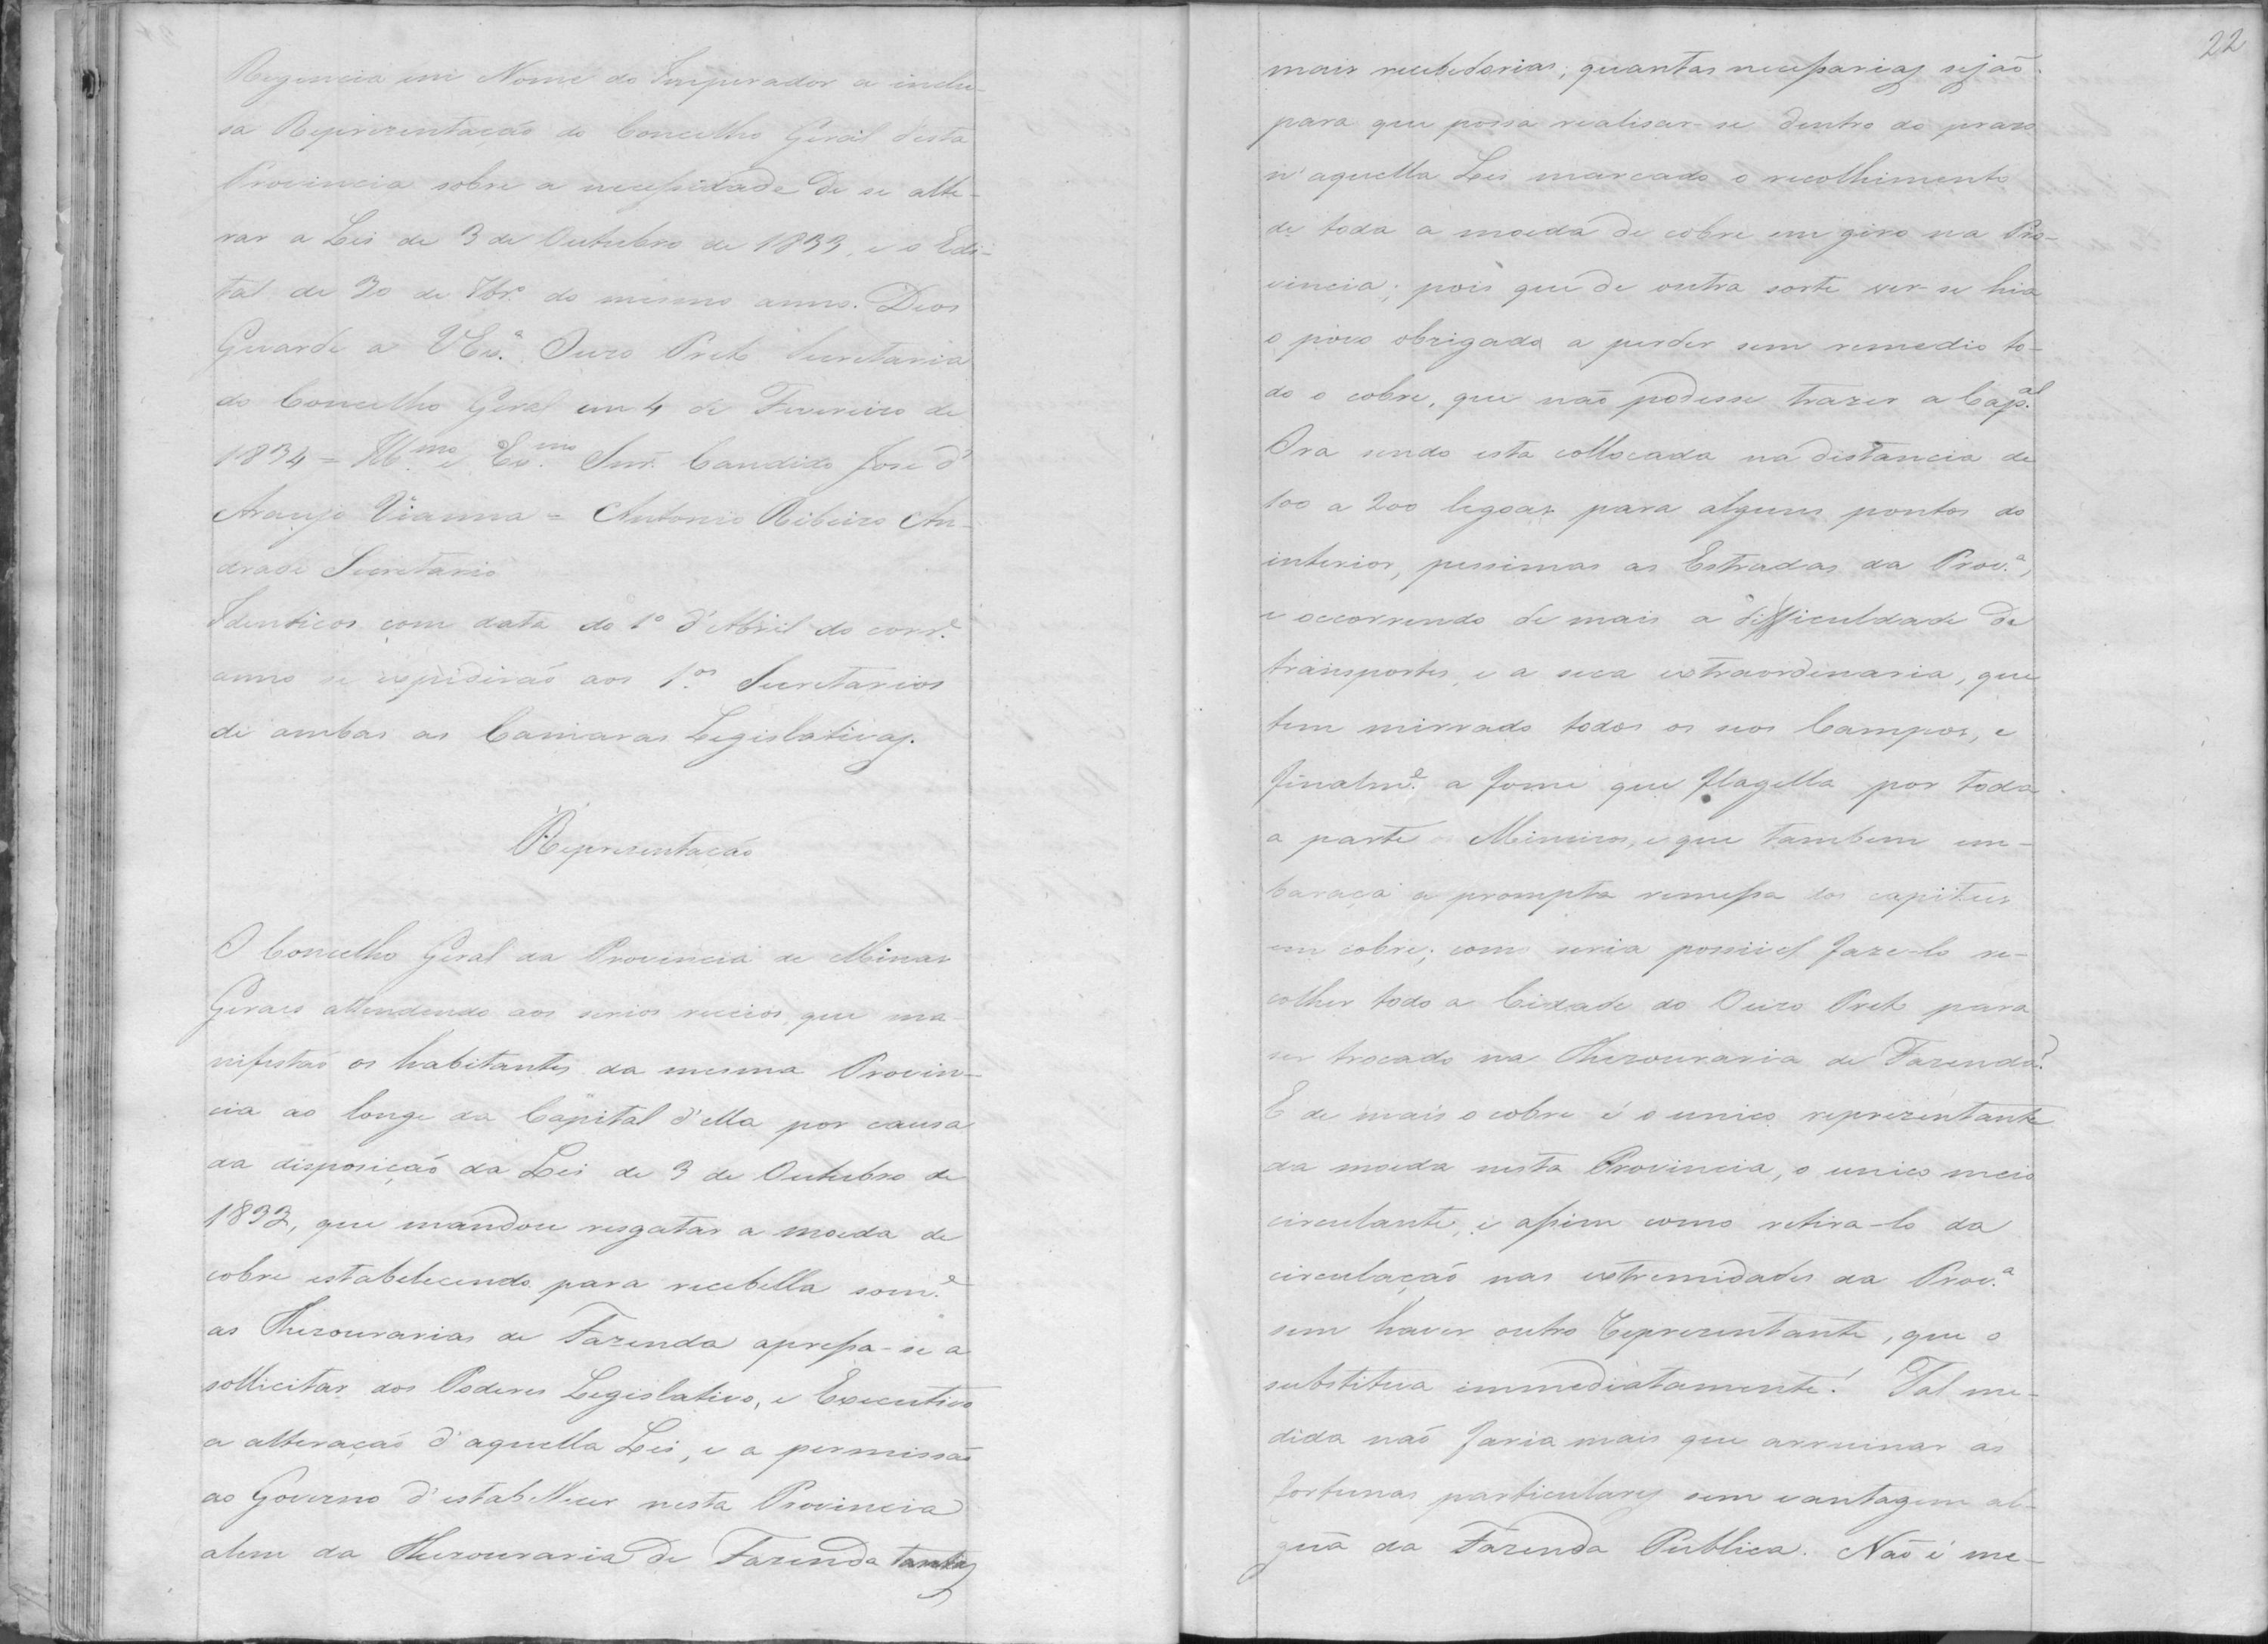 Regencia em Nome do Imperador a inclu-
sa Reprezentação do Concelho Geral desta
Provincia sobre a necessidade de se alte-
rar a Lei de 3 de Outubro de 1833, e o Edi-
tal de 30 de 7br.º do mesmo anno. Deos
Guarde a VEx.ª Ouro Preto Secretaria
do Concelho Geral em 4 de Fevereiro de
1834 = Ill.mo e Ex.mo Snr. Candido José d'
Araujo Vianna = Antonio Ribeiro An-
drade Secretario
Identicos com data do 1º d'Abril do corr.e
anno se expidirão aos 1.os Secretarios
de ambas as Camaras Legislativas.
Reprezentação
O Concelho Geral da Provincia de Minas
Geraes attendendo aos serios receios, que ma-
nifestão os habitantes da mesma Provin-
cia ao longe da Capital d'ella por causa
da disposição da Lei de 3 de Outubro de
1833, que mandou resgatar a moeda de
cobre estabelecendo para recebella som.e
as Thezourarias de Fazenda apressa-se a
sollicitar dos Poderes Legislativo, e Executivo
a alteração d'aquella Lei, e a permissão
ao Governo d'estabellecer nesta Provincia
alem da Thezouraria de Fazenda tantas
22
mais recebedorias, quantas necessarias sejão
para que possa realisar-se dentro do prazo
n'aquella Lei marcado o recolhimento
de toda a moeda de cobre em giro na Pro-
vincia; pois que de outra sorte ver-se hia
o povo obrigado a perder sem remedio to-
do o cobre, que não podesse trazer a Cap.al
Ora sendo esta collocada na distancia de
100 a 200 legoas para alguns pontos do
interior, pessimas as Estradas da Prov.ª,
e occorrendo de mais a difficuldade de
transportes, e a seca extraordenaria, que
tem mirrado todos os seos Campos, e
finalm.e a fome que flagella por toda
a parte Mineiros, e que tambem em-
baraça a prompta remessa dos capitaes
em cobre; como seria possivel faze-lo re-
colher todo a Cidade do Ouro Preto para
ser trocado na Thezouraria de Fazenda?
E de mais o cobre é o unico reprezentante
da moeda nesta Provincia, o unico meio
circulante, e assim como retira-lo da
circulação nas extremidades da Prov.ª
sem haver outro Reprezentante, que o
substitua immediatamente! Tal me-
dida não faria mais que arruinar as
fortunas particulares sem vantagem al-
guã da Fazenda Publica. Não é me-